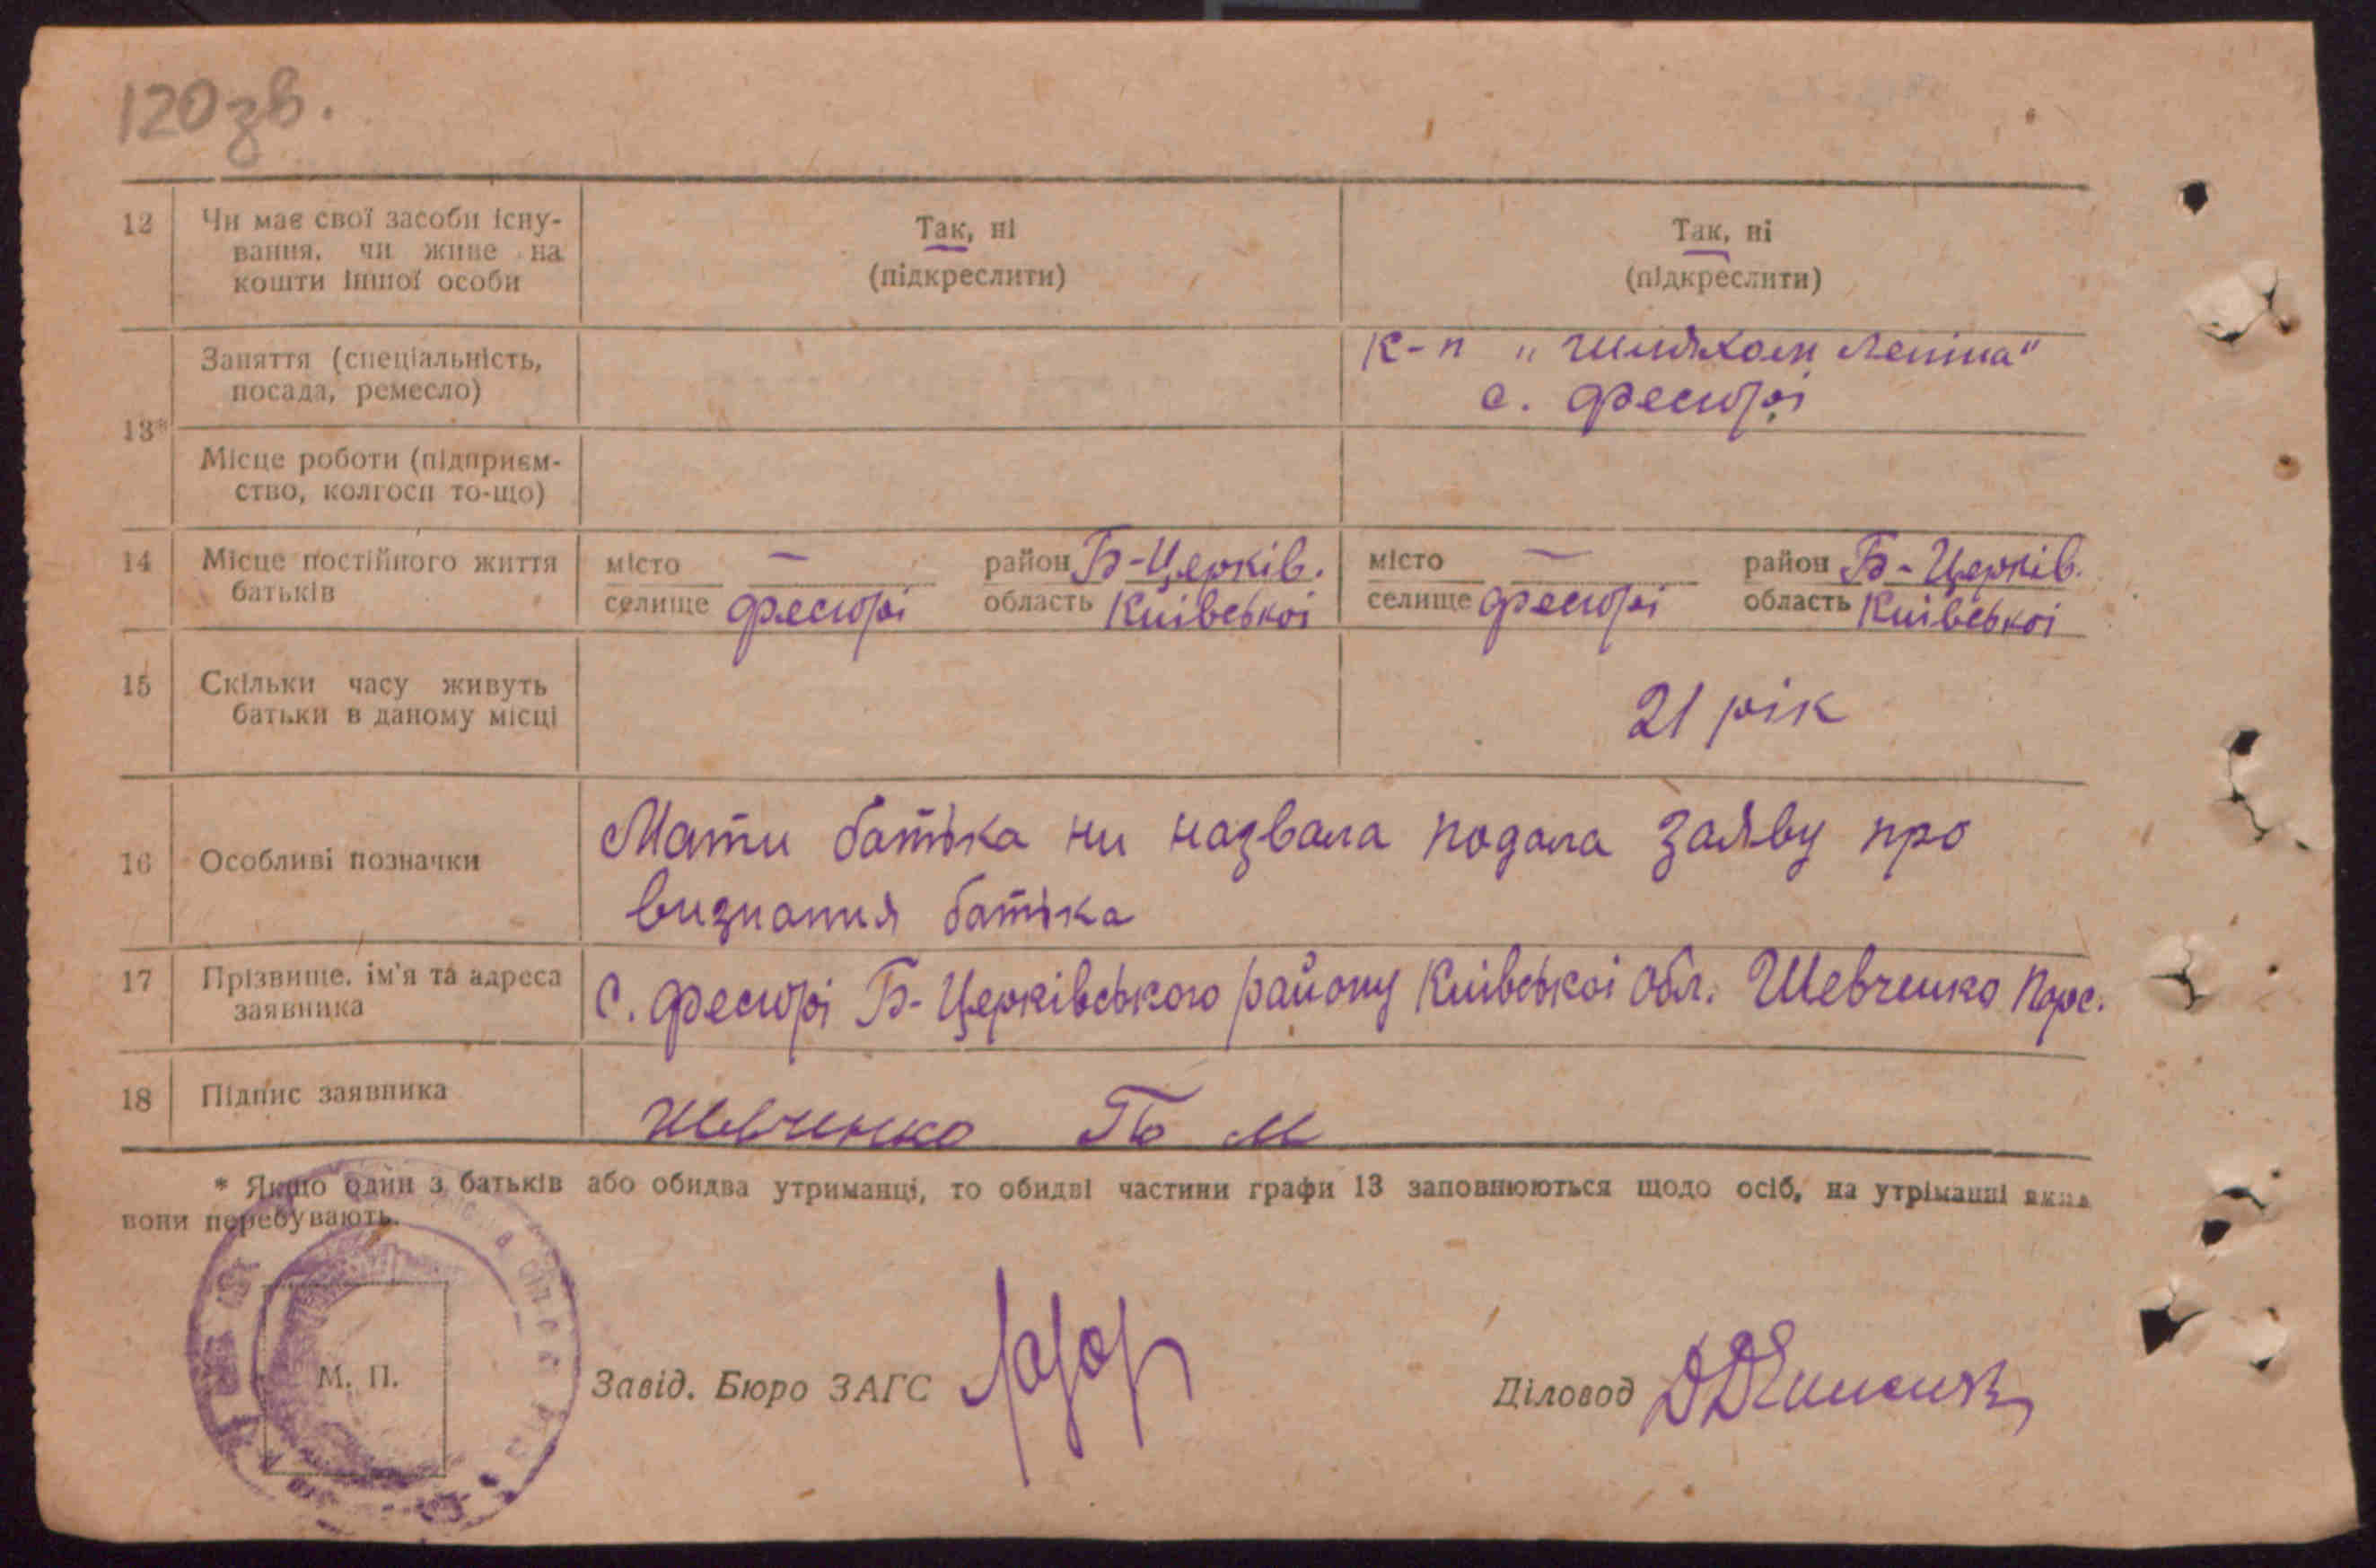 120 зв.
12 Чи має свої засоби існу-
вання, чи живе на
кошти іншої особи
Так, ні
(підкреслити)
Так, ні
(підкреслити)
13*
Заняття (спеціальність,
посада, ремесло)
к-п "Шляхом Леніна"
с. Фесюрі
Місце роботи (підприєм-
ство, колгосп то-що)
14 Місце постійного життя
батьків
місто — район Б-Церків.
селище Фесюрі область Київської
місто — район Б-Церків.
селище Фесюрі область Київської
15 Скільки часу живуть
батьки в даному місці
21 рік
16 Особливі позначки
Мати батька ни назвала подала заяву про
визнання батька
17 Прізвище, ім'я та адреса
заявника
с. Фесюрі Б-Церківського району Київської обл. Шевченко Пара.
18 Підпис заявника
Шевченко П М
* Якщо один з батьків або обидва утриманці, то обидві частини графи 13 заповнюються щодо осіб, на утріманні яких
вони перебувають.
М. П.
Завід. Бюро ЗАГС
Діловод